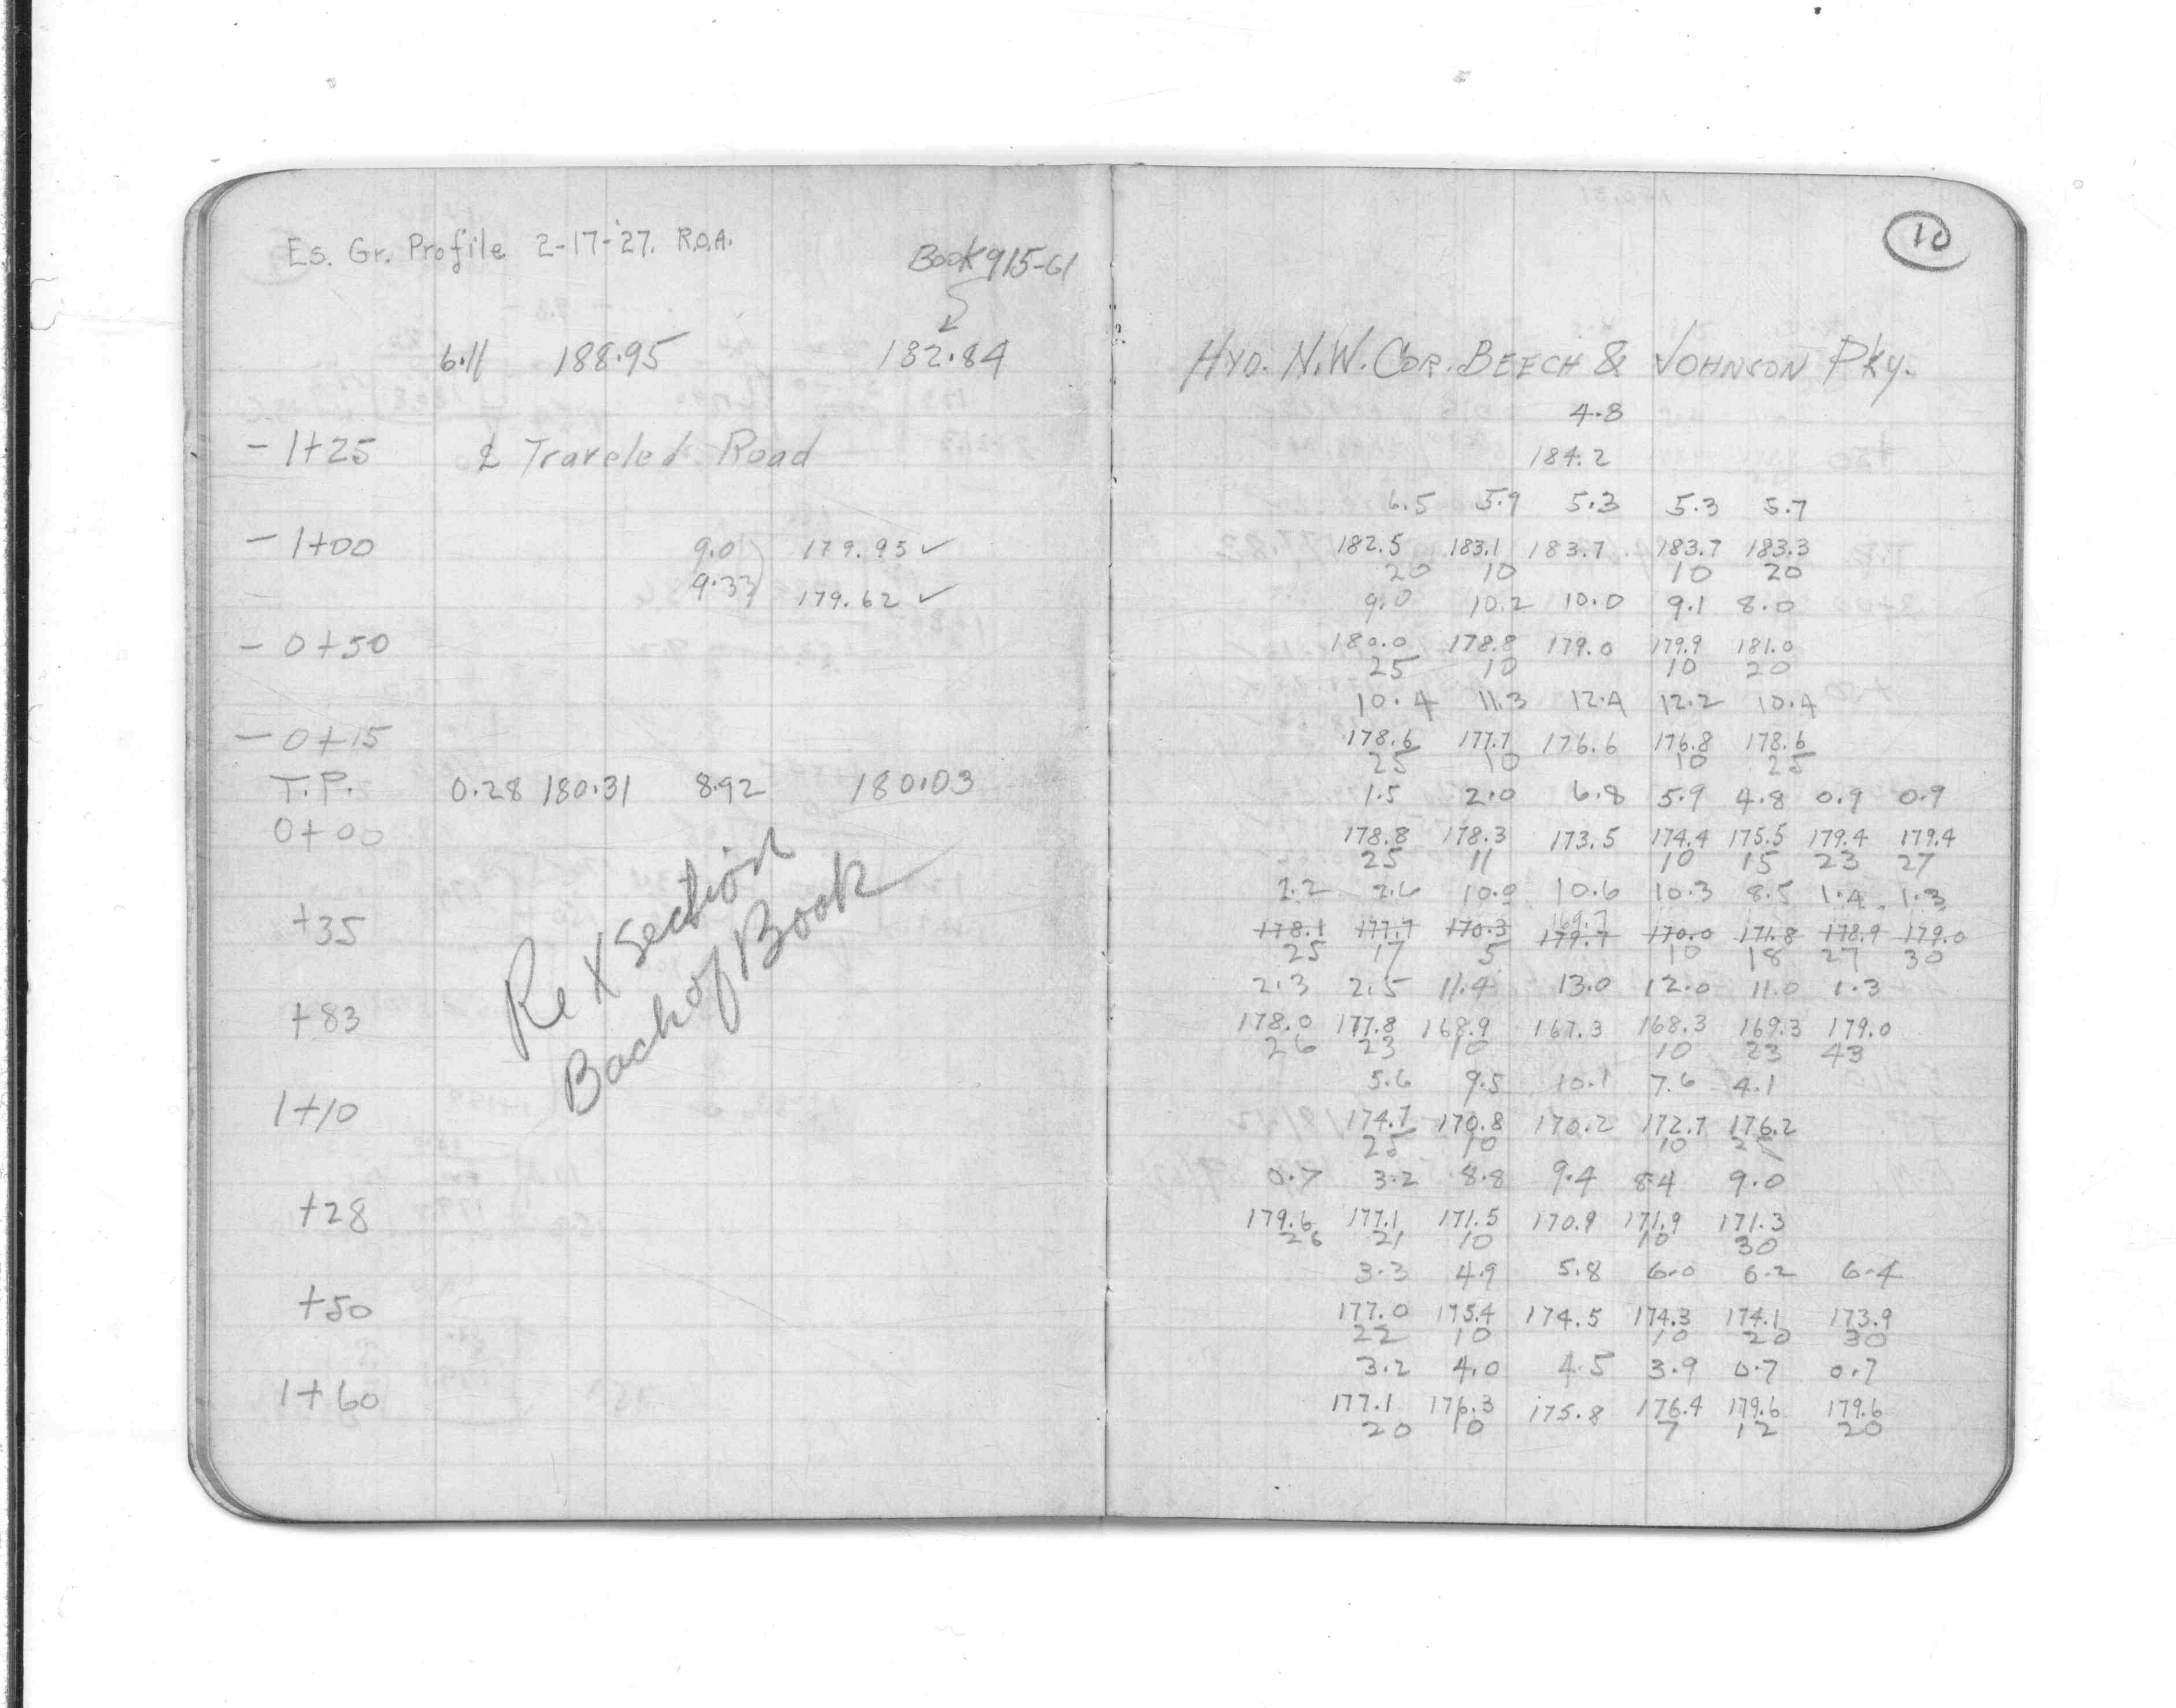 Es. Gr. Profile 2-17-'27. R.O.A.
Book 915-61
6.11 188.95 182.84
- 1+25 ℄ Traveled Road
- 1+00 9.0 179.95 ✓
9.33 179.62 ✓
- 0+50
- 0+15
T.P. 0.28 180.31 8.92 180.03
0+00
+35
+83
1+10
+28
+50
1+60
Re X Section
Back of Book
10
HYD. N.W. COR. BEECH & JOHNSON Pky.
4.8
184.2
6.5 5.9 5.3 5.3 5.7
182.5 183.1 183.7 183.7 183.3
20 10 10 20
9.0 10.2 10.0 9.1 8.0
180.0 178.8 179.0 179.9 181.0
25 10 10 20
10.4 11.3 12.4 12.2 10.4
178.6 177.7 176.6 176.8 178.6
25 10 10 25
1.5 2.0 6.8 5.9 4.8 0.9 0.9
178.8 178.3 173.5 174.4 175.5 179.4 179.4
25 11 10 15 23 27
2.2 2.6 10.0 10.6 10.3 8.5 1.4 1.3
169.7
178.1 177.7 170.3 179.7 170.0 171.8 178.9 179.0
25 17 5 10 18 27 30
2.3 2.5 11.4 13.0 12.0 11.0 1.3
178.0 177.8 168.9 167.3 168.3 169.3 179.0
26 23 10 10 23 43
5.6 9.5 10.1 7.6 4.1
174.7 170.8 170.2 172.7 176.2
25 10 10 25
0.7 3.2 8.8 9.4 8.4 9.0
179.6 177.1 171.5 170.9 171.9 171.3
26 21 10 10 30
3.3 4.9 5.8 6.0 6.2 6.4
177.0 175.4 174.5 174.3 174.1 173.9
22 10 10 20 30
3.2 4.0 4.5 3.9 0.7 0.7
177.1 176.3 175.8 176.4 179.6 179.6
20 10 7 12 20